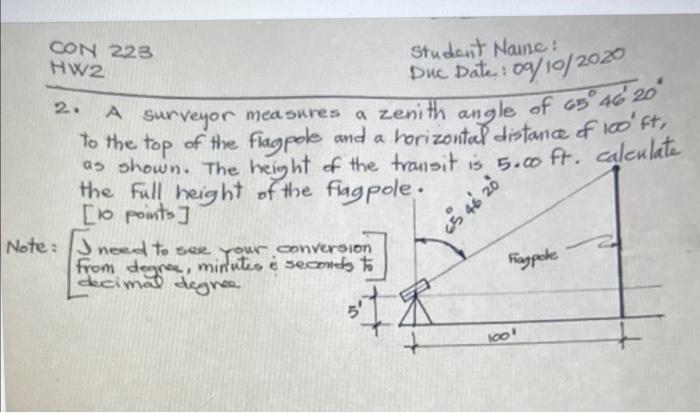 CON 223
HW2
Student Name:
Due Date: 09/10/2020
2. A surveyor measures a zenith angle of 65° 46' 20"
to the top of the flagpole and a horizontal distance of 100' ft,
as shown. The height of the transit is 5.00 ft. calculate
the full height of the flagpole.
[10 points]
65° 46' 20"
Note: [I need to see your conversion
from degree, minutes & seconds to
decimal degree]
Flagpole
5'
100'